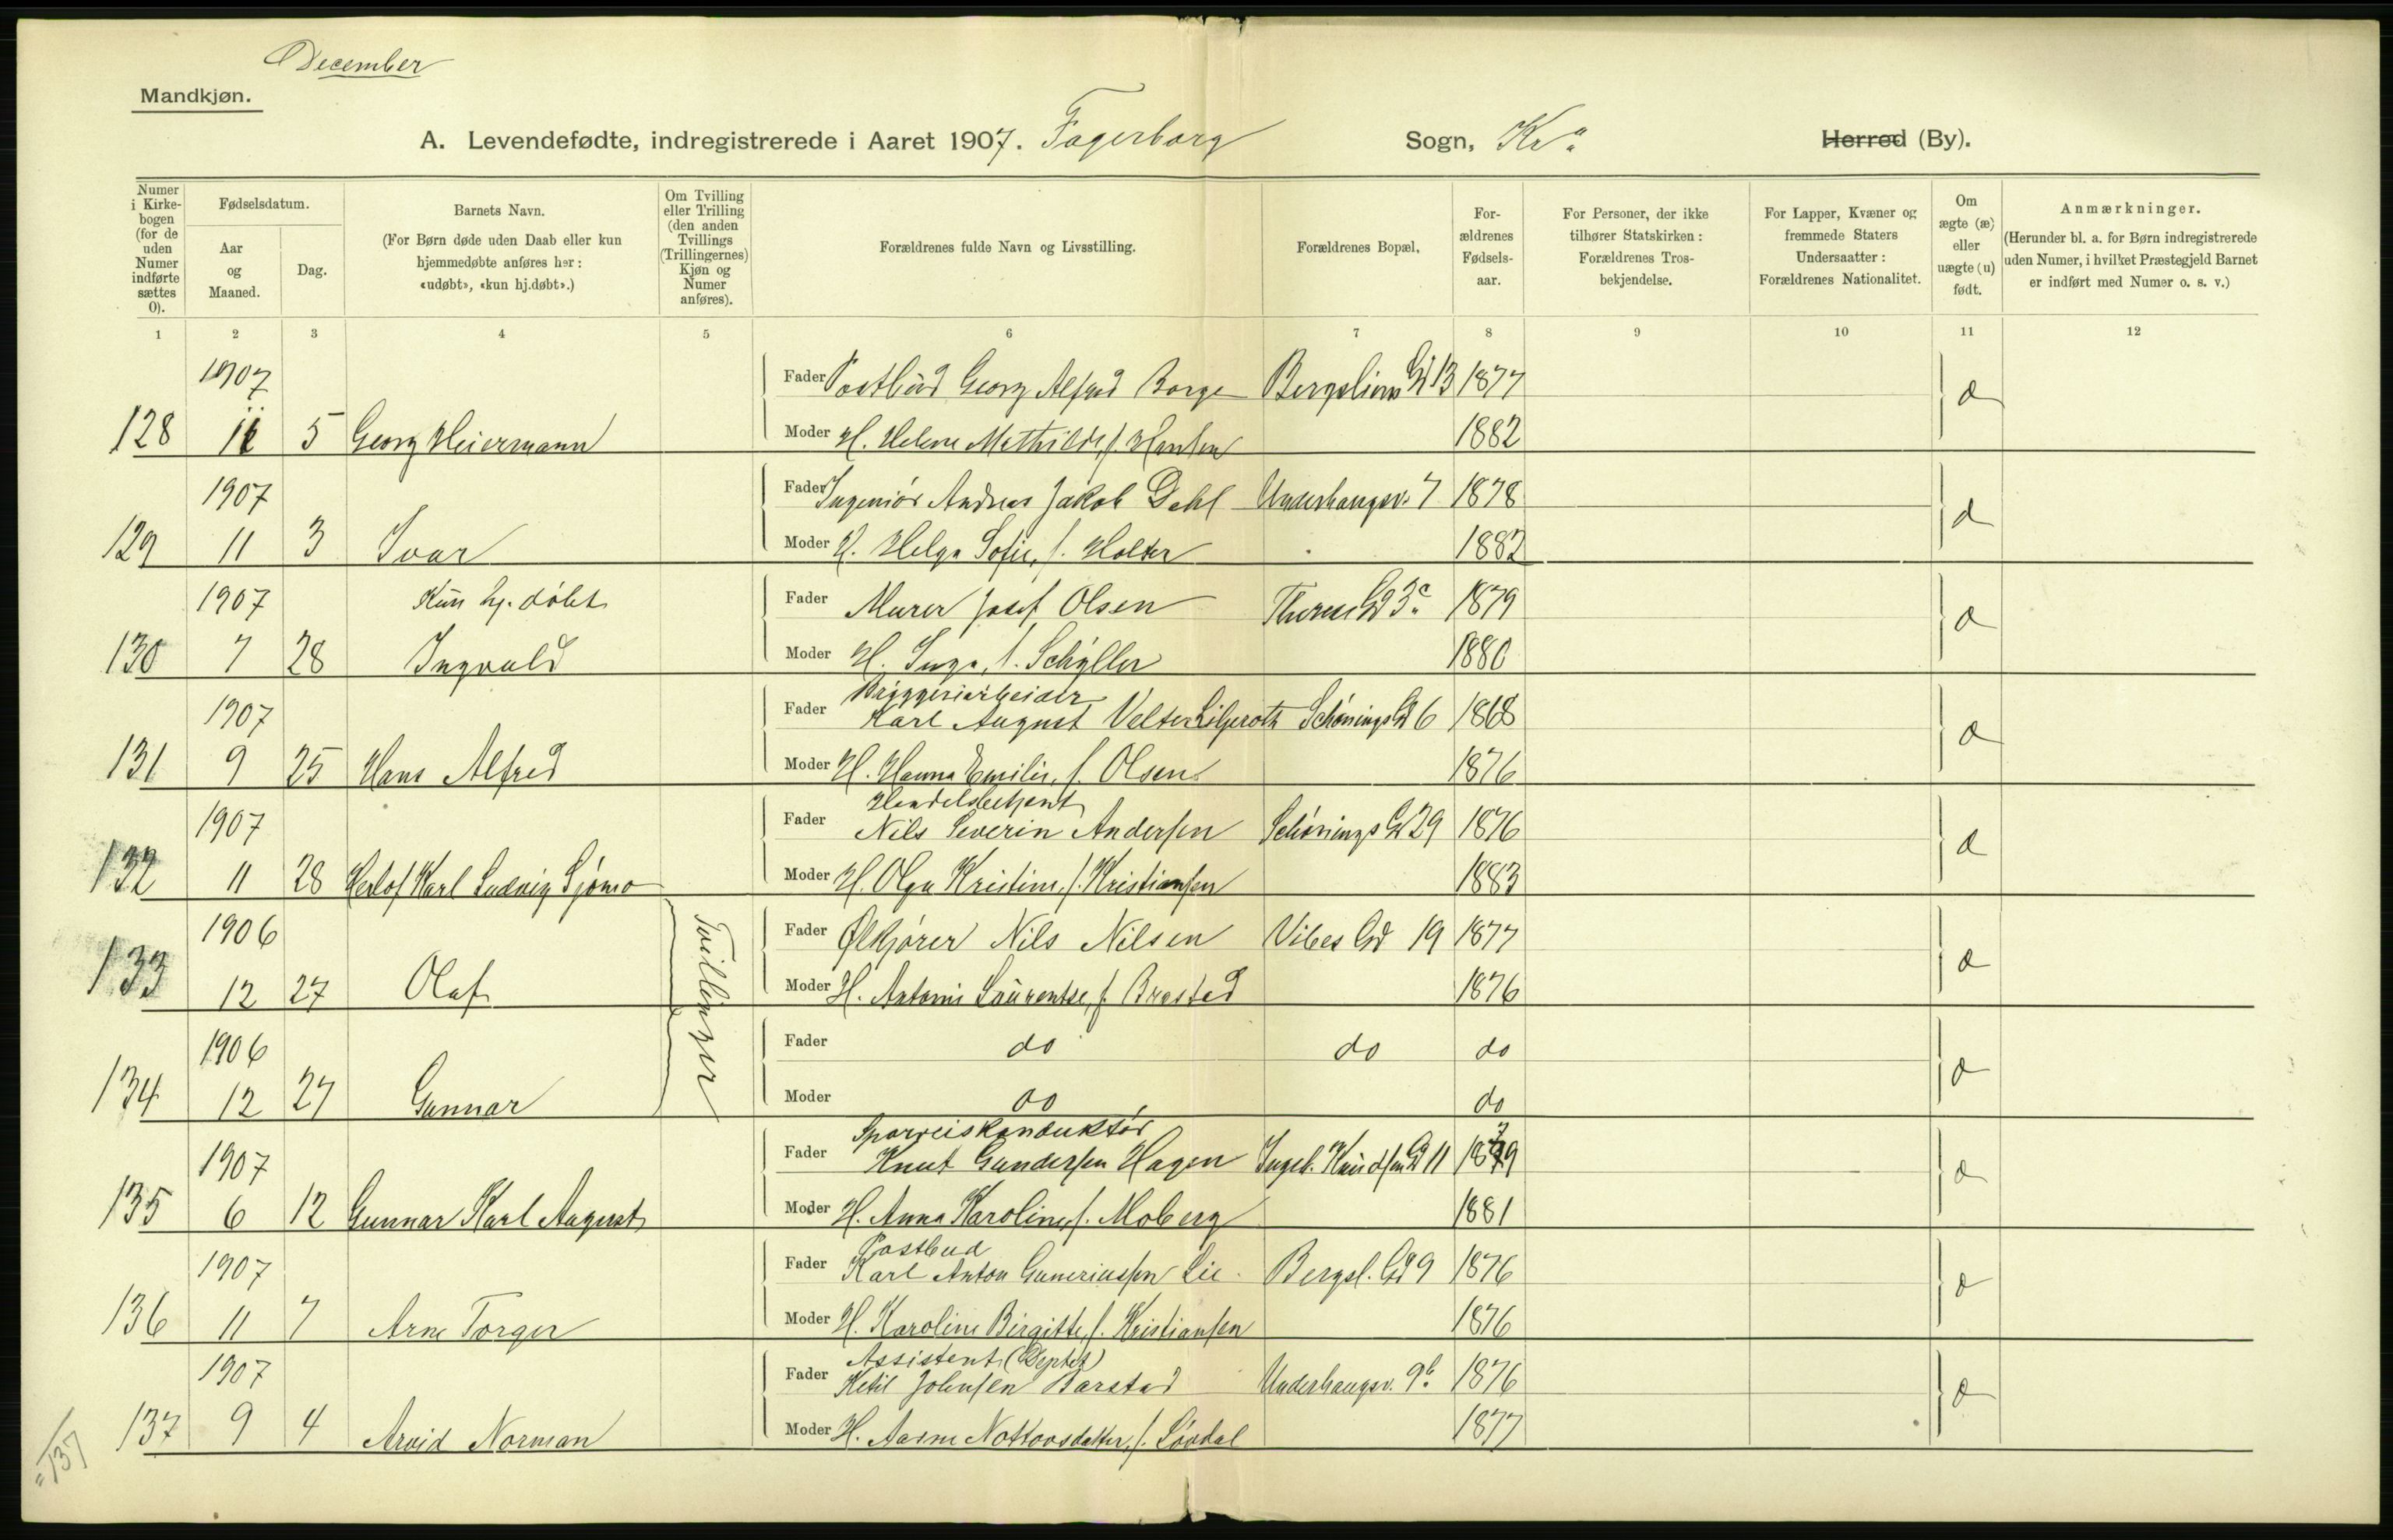 December
Mandkjøn.
A. Levendefødte, indregistrerede i Aaret 1907. Fagerborg Sogn, Kra Herred (By).
Numer i Kirkebogen (for de uden Numer indførte sættes 0).
Fødselsdatum.
Aar og Maaned.
Dag.
Barnets Navn.
(For Børn døde uden Daab eller kun hjemmedøbte anføres her: «udøbt», «kun hj.døbt».)
Om Tvilling eller Trilling (den anden Tvillings (Trillingernes) Kjøn og Numer anføres).
Forældrenes fulde Navn og Livsstilling.
Forældrenes Bopæl.
Forældrenes Fødselsaar.
For Personer, der ikke tilhører Statskirken: Forældrenes Trosbekjendelse.
For Lapper, Kvæner og fremmede Staters Undersaatter: Forældrenes Nationalitet.
Om ægte (æ) eller uægte (u) født.
Anmærkninger.
(Herunder bl. a. for Børn indregistrerede uden Numer, i hvilket Præstegjeld Barnet er indført med Numer o. s. v.)
1 2 3 4 5 6 7 8 9 10 11 12
1907 Fader Postbud Georg Alfred Borge Bergsliens Gd 13 1877 æ
128 11 5 Georg Heiermann Moder H. Helene Mathilde, f. Hansen 1882
1907 Fader Ingeniør Andreas Jakob Dahl Underhaugsv. 7 1878 æ
129 11 3 Ivar Moder H. Helga Sofie, f. Holter 1882
1907 Kun hj. døbt Fader Murer Josef Olsen Theresesgd 3c 1879 æ
130 7 28 Ingvald Moder H. Inga, f. Schyller 1880
Bryggeriarbeider
1907 Fader Karl August Velter Liljeroth Schønings Gd 6 1868 æ
131 9 25 Hans Alfred Moder H. Hanna Emilie, f. Olsen 1876
Handelsbetjent
1907 Fader Nils Severin Andersen Schønings Gd 29 1876 æ
132 11 28 Herlof Karl Ludvig Sjømo Moder H. Olga Kristine, f. Kristiansen 1883
1906 Fader Ølkjører Nils Nilsen Vibes Gd 19 1877 æ
133 12 27 Olaf Tvillinger Moder H. Antonie Laurentze, f. Brastad 1876
1906 Fader do do do æ
134 12 27 Gunnar Moder do do
Sporveiskonduktør
1907 Fader Knut Gundersen Hagen Ingeb. Knudsens Gd 11 1879 æ
135 6 12 Gunnar Karl August Moder H. Anna Karoline, f. Moberg 1881
Postbud
1907 Fader Karl Anton Guneriussen Lie Bergsl. Gd 9 1876 æ
136 11 7 Arne Torger Moder H. Karoline Birgitte, f. Kristiansen 1876
Assistent (Deptet)
1907 Fader Ketil Johnsen Barstad Underhaugsv. 9b 1876 æ
137 9 4 Arvid Norman Moder H. Aasne f. Løvdal 1877
=137